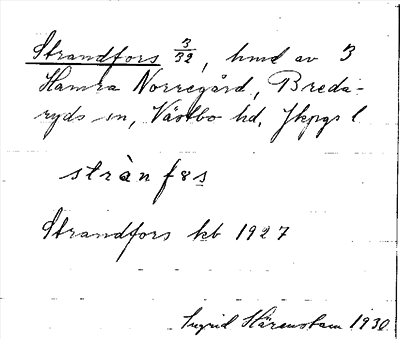 Strandfors 3/32, hmd av 3
Hamra Norregård, Breda-
ryds sn, Västbo hd, Jkpgs l
stràn fɞs
Strandfors kb 1927
Ingrid Härenstam 1930